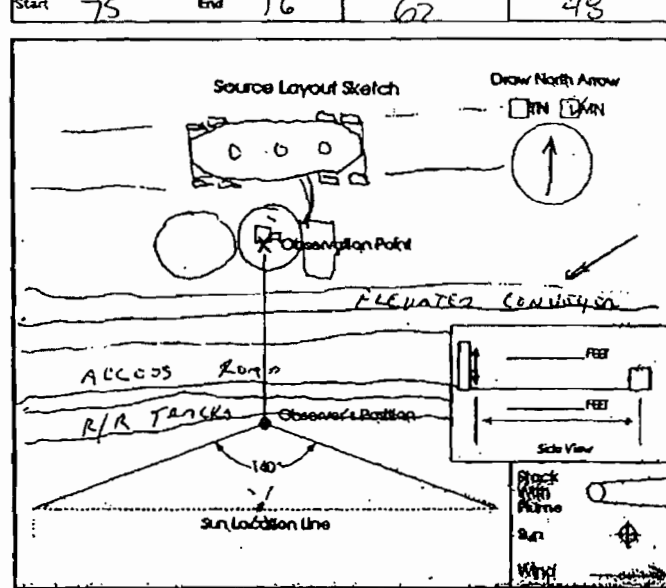 Start 75 End 76 62 48
Source Layout Sketch
Draw North Arrow
TN MN
X Observation Point
ELEVATED CONVEYOR
FEET
ACCESS ROAD
FEET
R/R TRACKS Observer's Position
Side View
140°
Sun Location Line
Stack
With
Plume
Sun
Wind